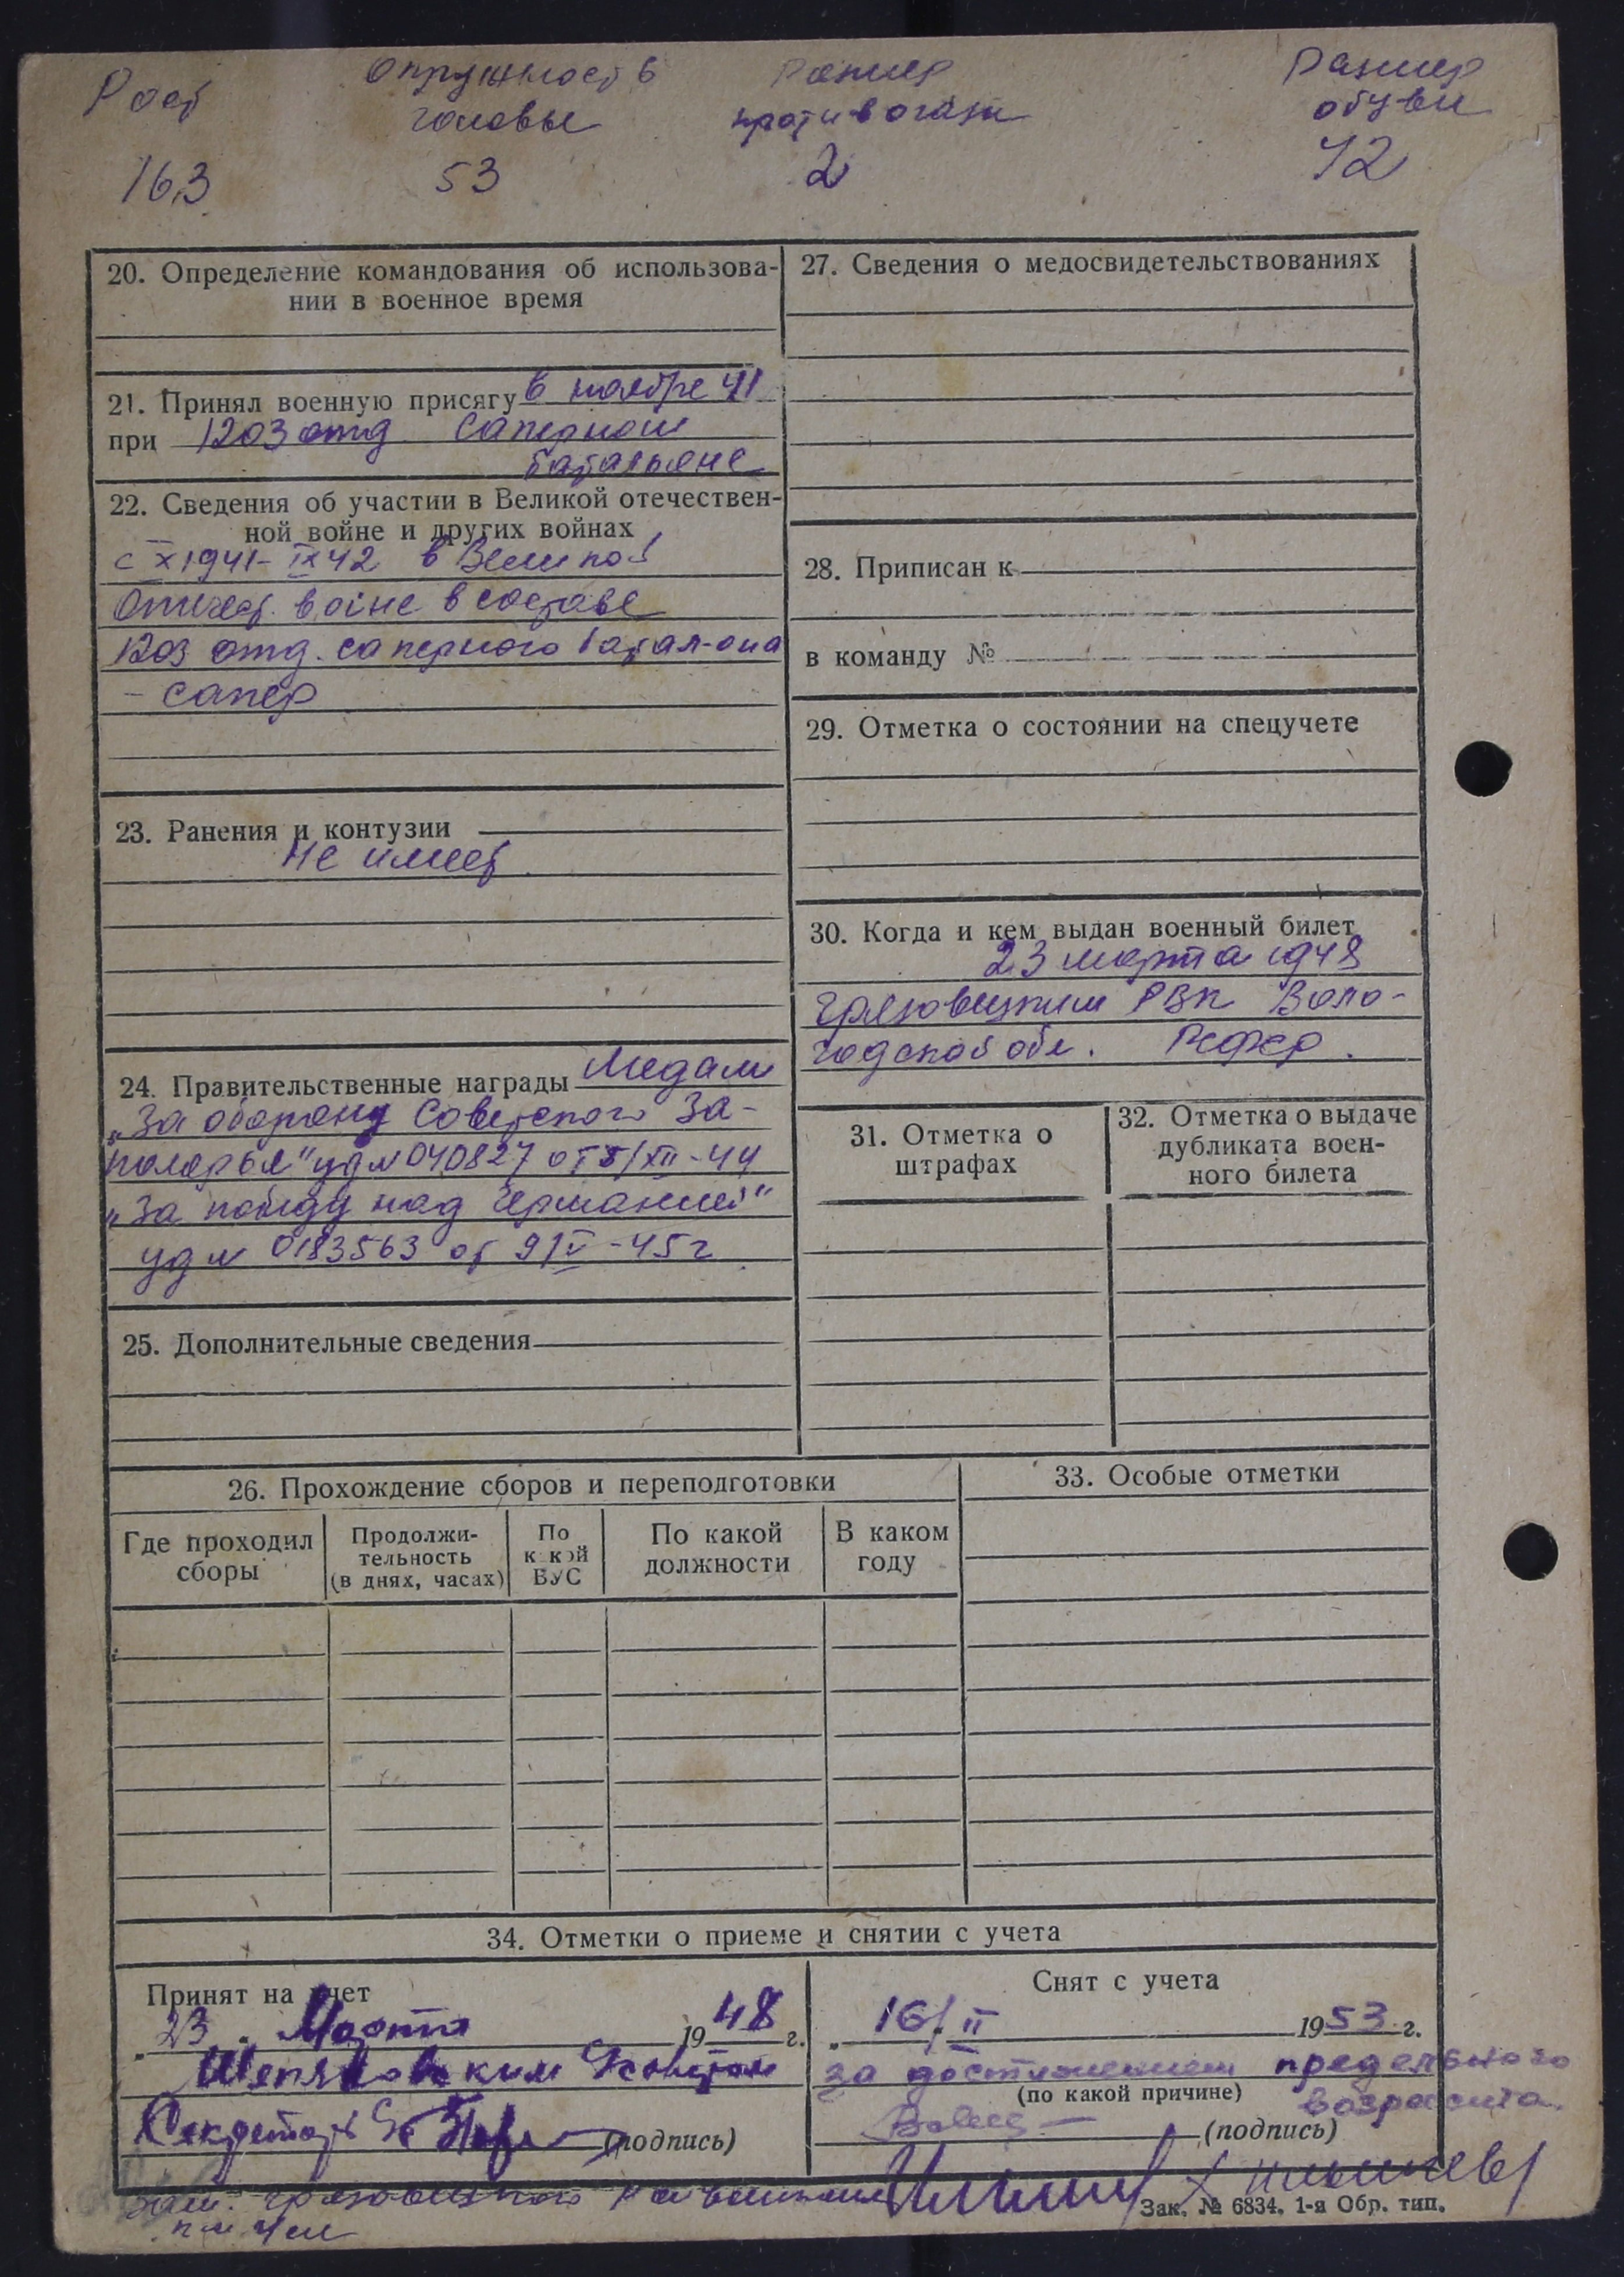 Рост
Окружность
головы
Размер
противогаза
Размер
обуви
163
53
2
42
20. Определение командования об использова-
нии в военное время
21. Принял военную присягу в ноябре 41
при 1203 отд. саперном
батальоне
22. Сведения об участии в Великой отечествен-
ной войне и других войнах
с X 1941 - IX 42 в Великой
Отечест. войне в составе
1203 отд. саперного батал-она
- сапер
23. Ранения и контузии
Не имеет
24. Правительственные награды Медали
„За оборону Советского За-
полярья" уд № 040827 от 5/XII-44
„За победу над Германией"
уд № 0183563 от 9/V-45 г
25. Дополнительные сведения
27. Сведения о медосвидетельствованиях
28. Приписан к
в команду №
29. Отметка о состоянии на спецучете
30. Когда и кем выдан военный билет
23 марта 1948
Грязовецким РВК Воло-
годской обл.
31. Отметка о
штрафах
32. Отметка о выдаче
дубликата воен-
ного билета
26. Прохождение сборов и переподготовки
Где проходил
сборы
Продолжи-
тельность
(в днях, часах)
По
какой
ВУС
По какой
должности
В каком
году
33. Особые отметки
34. Отметки о приеме и снятии с учета
Принят на учет
„23" Марта 1948 г.
Секретарь (подпись)
Снят с учета
„16/II 1953 г.
за достижением предельного
(по какой причине) возраста.
(подпись)
Грязовецкого Райвоенкома
Зак. № 6834. 1-я Обр. тип.